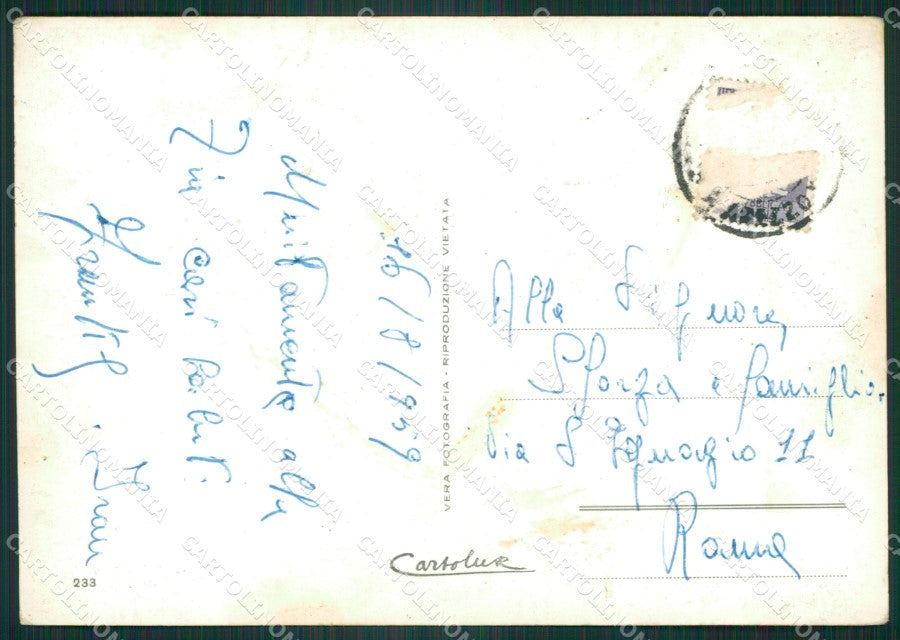 16/8/1959
Unitamente alla
più cari saluti
VERA FOTOGRAFIA - RIPRODUZIONE VIETATA
AREZZO
Alla Signora,
Sforza e famiglia
Via S Ignazio 11
Roma
Cartolux
233
CARTOLINOMANIA